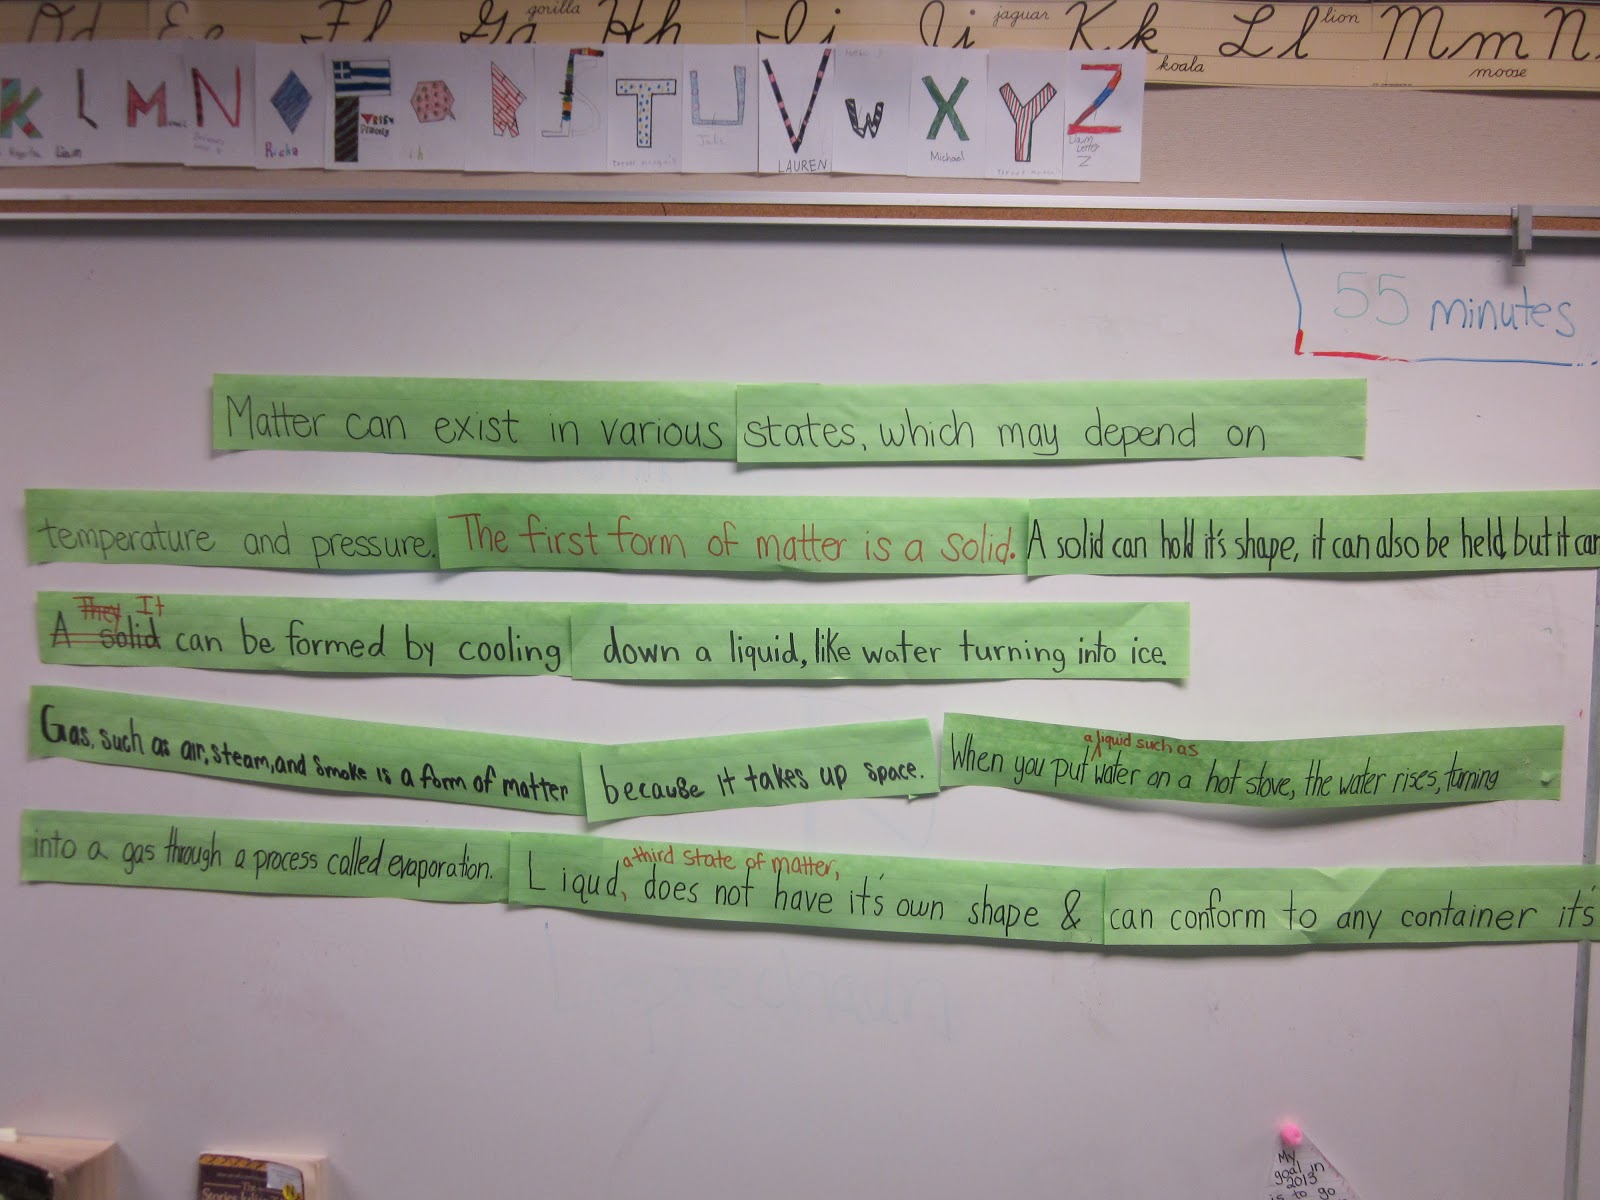 gorilla jaguar lion
Hh Kk Ll Mm N
koala moose
K L M N T U V W X Y Z
Liam Richa LAUREN Michael
55 minutes
Matter can exist in various states, which may depend on
temperature and pressure. The first form of matter is a solid. A solid can hold it's shape, it can also be held, but it can
They It
A solid can be formed by cooling down a liquid, like water turning into ice.
Gas, such as air, steam, and smoke is a form of matter because it takes up space.
a liquid such as
When you put water on a hot stove, the water rises, turning
into a gas through a process called evaporation.
a third state of matter,
Liqud, does not have it's own shape & can conform to any container it's
My
goal in
2013
is to go
The
Stories